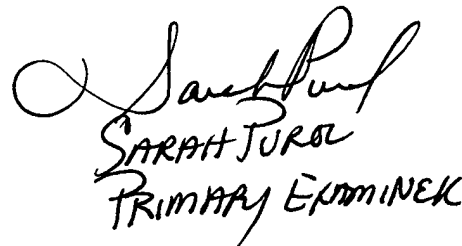 Sarah Purol
SARAH PUROL
PRIMARY EXAMINER